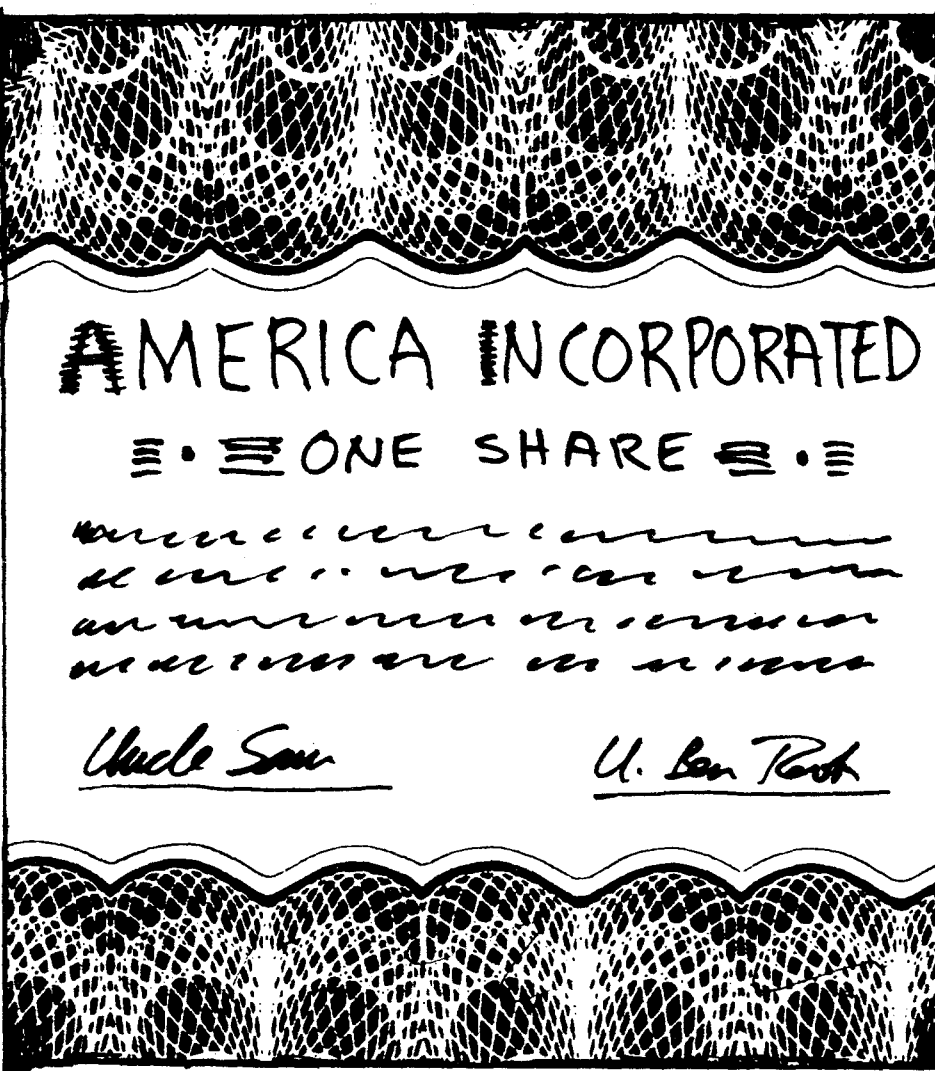 AMERICA INCORPORATED
ONE SHARE
Uncle Sam U. Ben